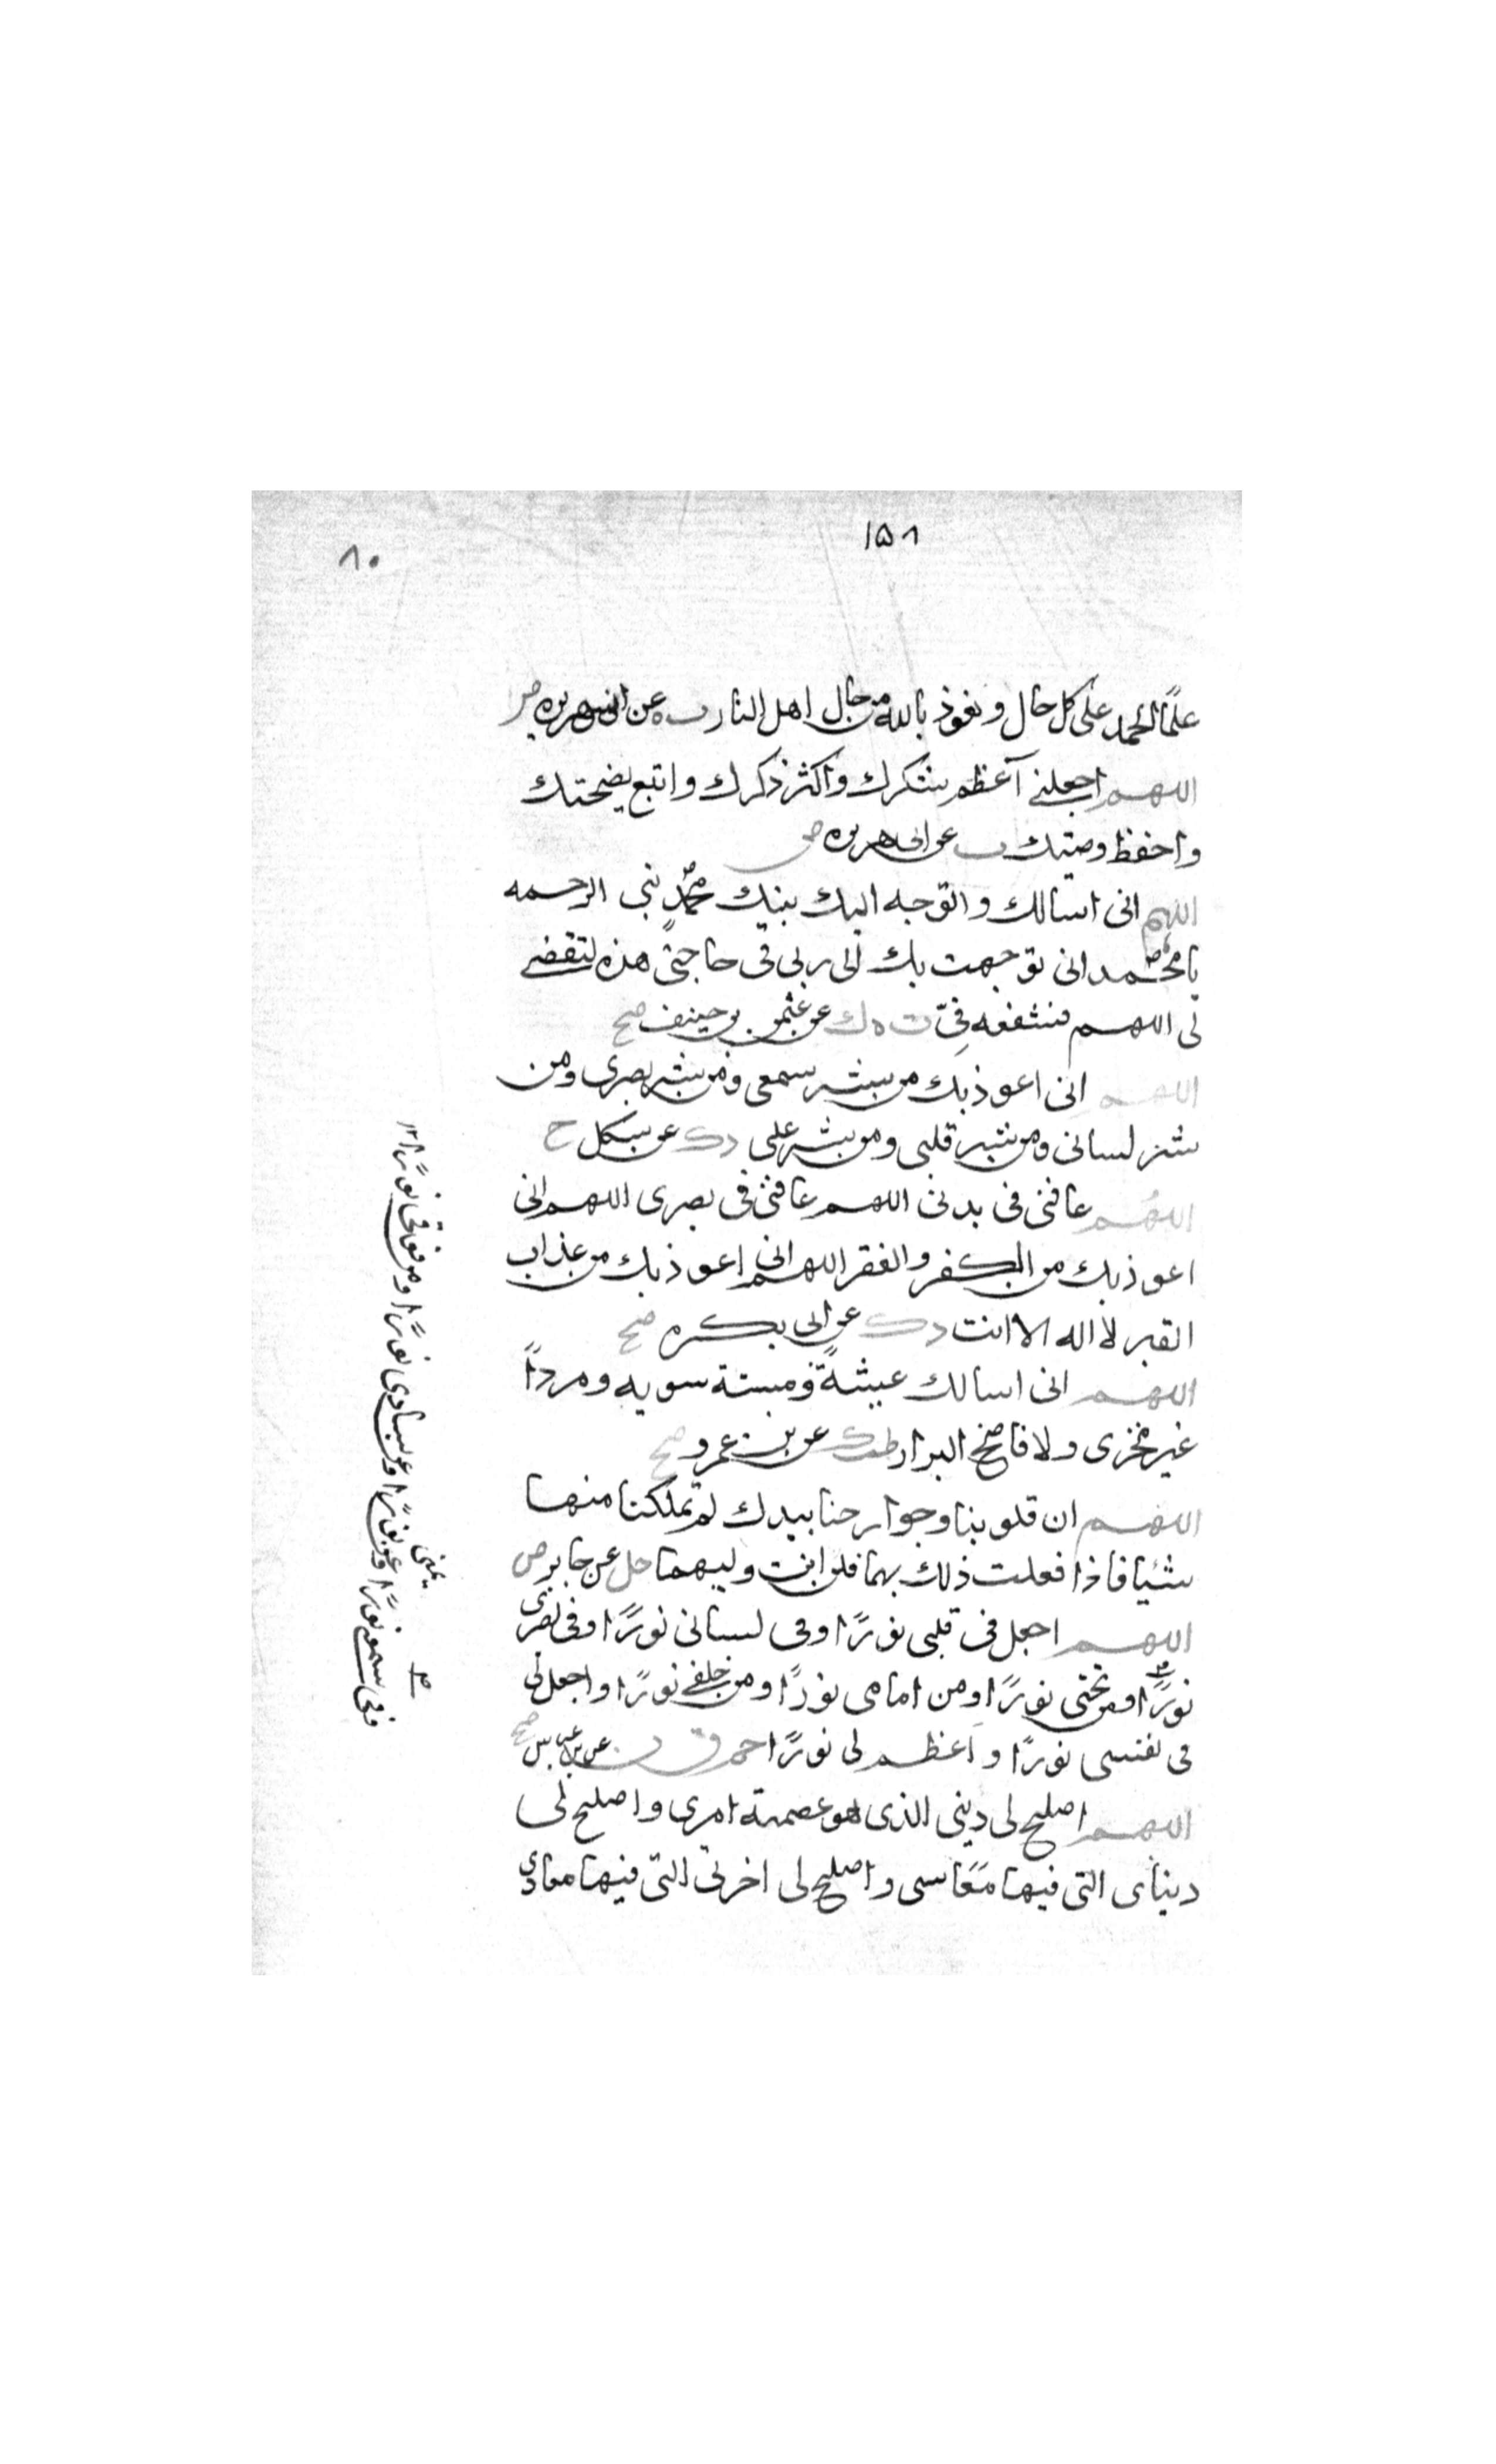 ١٥٨
٨٠
علمًا الحمد على كل حال ونعوذ بالله من حال اهل النار ت ه عن ابى هريره ض
اللهم اجعلنى أعظم شكرك واكثر ذكرك واتبع نصيحتك
واحفظ وصيتك ت عن ابى هريره ض
اللهم انى اسالك واتوجه اليك بنبيك محمدٍ نبى الرحمه
يا محمد انى توجهت بك الى ربى فى حاجتى هذه لتقضى
لى اللهم فشفعه فىّ ت ه ك عن عثمن بن حنيف صح
اللهم انى اعوذ بك من شر سمعى ومن شر بصرى ومن
شر لسانى ومن شر قلبى ومن شر على د ك عن شكل ح
اللهم عافنى فى بدنى اللهم عافنى فى بصرى اللهم انى
اعوذ بك من الكفر والفقر اللهم انى اعوذ بك من عذاب
القبر لا اله الا انت د ك عن ابى بكره صح
اللهم انى اسالك عيشةً وميتة سويه ومردًا
غير مخزى ولا فاضح البزار طب ك عن بن عمرو صح
اللهم ان قلوبنا وجوارحنا بيدك لم تملكنا منها
شئيا فاذا فعلت ذلك بهما فكن انت وليهما حل عن جابر ض
اللهم اجعل فى قلبى نورًا وفى لسانى نورًا وفى بصرى
نورًا ومن تحتى نورًا ومن امامى نورًا ومن خلفى نورًا واجعل لى
فى نفسى نورًا وأعظم لى نورًا حم ق ن عن بن عباس صح
اللهم اصلح لى دينى الذى هو عصمة امرى واصلح لى
دنياى التى فيها مَعَاسى واصلح لى اخرتى التى فيها معادى
وفى سمعى نورًا وعن يمينى نورًا وعن يسارى نورًا ومن فوقى نورًا ١٢